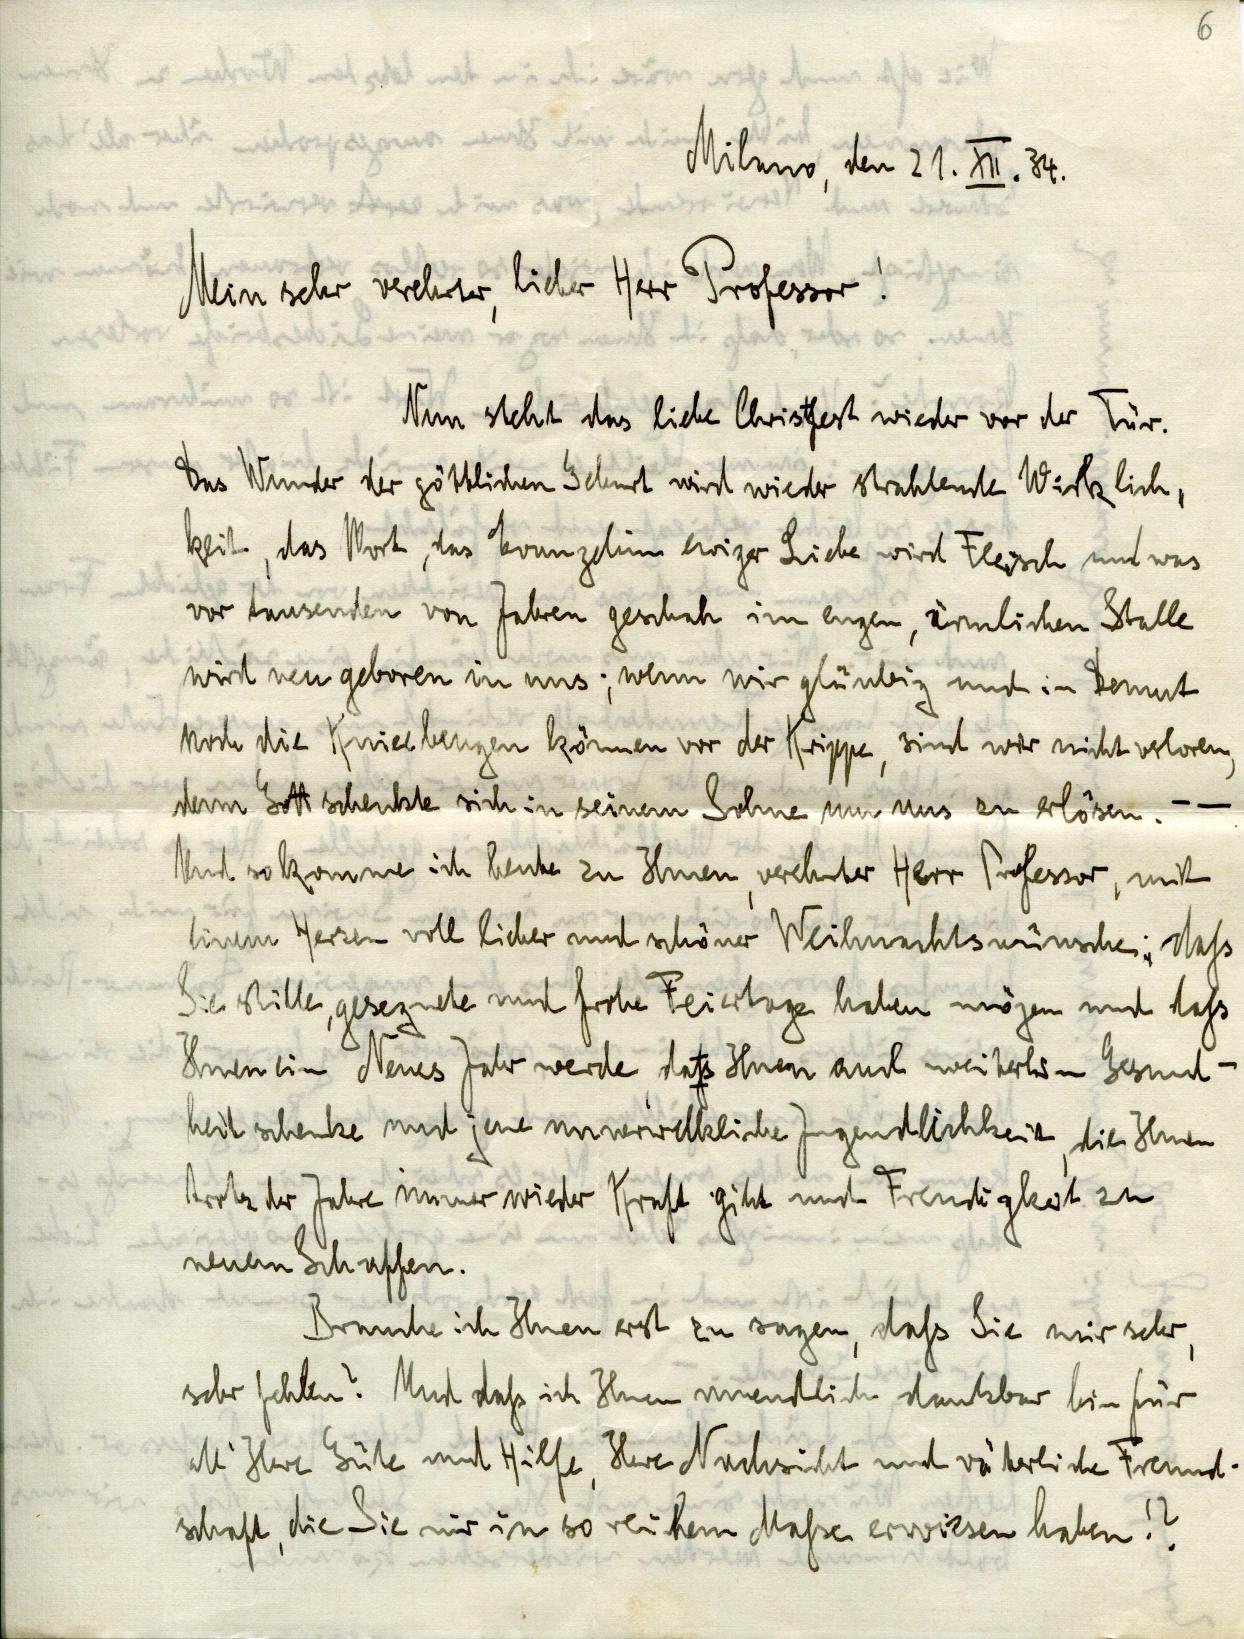 6
Milano, den 21. XII. 34.
Mein sehr verehrter, lieber Herr Professor!
Nun steht das liebe Christfest wieder vor der Tür.
Das Wunder der göttlichen Geburt wird wieder strahlende Wirklich-
keit, das Wort, das Evangelium ewiger Liebe wird Fleisch und was
vor tausenden von Jahren geschah im engen, ärmlichen Stalle
wird neu geboren in uns; wenn wir gläubig und in Demut
noch die Kniee beugen können vor der Krippe, sind wir nicht verloren,
denn Gott schenkte sich in seinem Sohne um uns zu erlösen. – —
Und so komme ich heute zu Ihnen, verehrter Herr Professor, mit
einem Herzen voll lieber und schöner Weihnachtswünsche; daß
Sie stille, gesegnete und frohe Feiertage haben mögen und daß
Ihnen ein Neues Jahr werde, daß Ihnen auch weiterhin Gesund-
heit schenke und jene unverwelkliche Jugendlichkeit, die Ihnen
trotz der Jahre immer wieder Kraft gibt und Freudigkeit zu
neuem Schaffen.
Brauche ich Ihnen erst zu sagen, daß Sie mir sehr,
sehr fehlen? Und daß ich Ihnen unendlich dankbar bin für
all' Ihre Güte und Hilfe, Ihre Nachsicht und väterliche Freund-
schaft, die Sie mir in so reichem Maße erwiesen haben!?